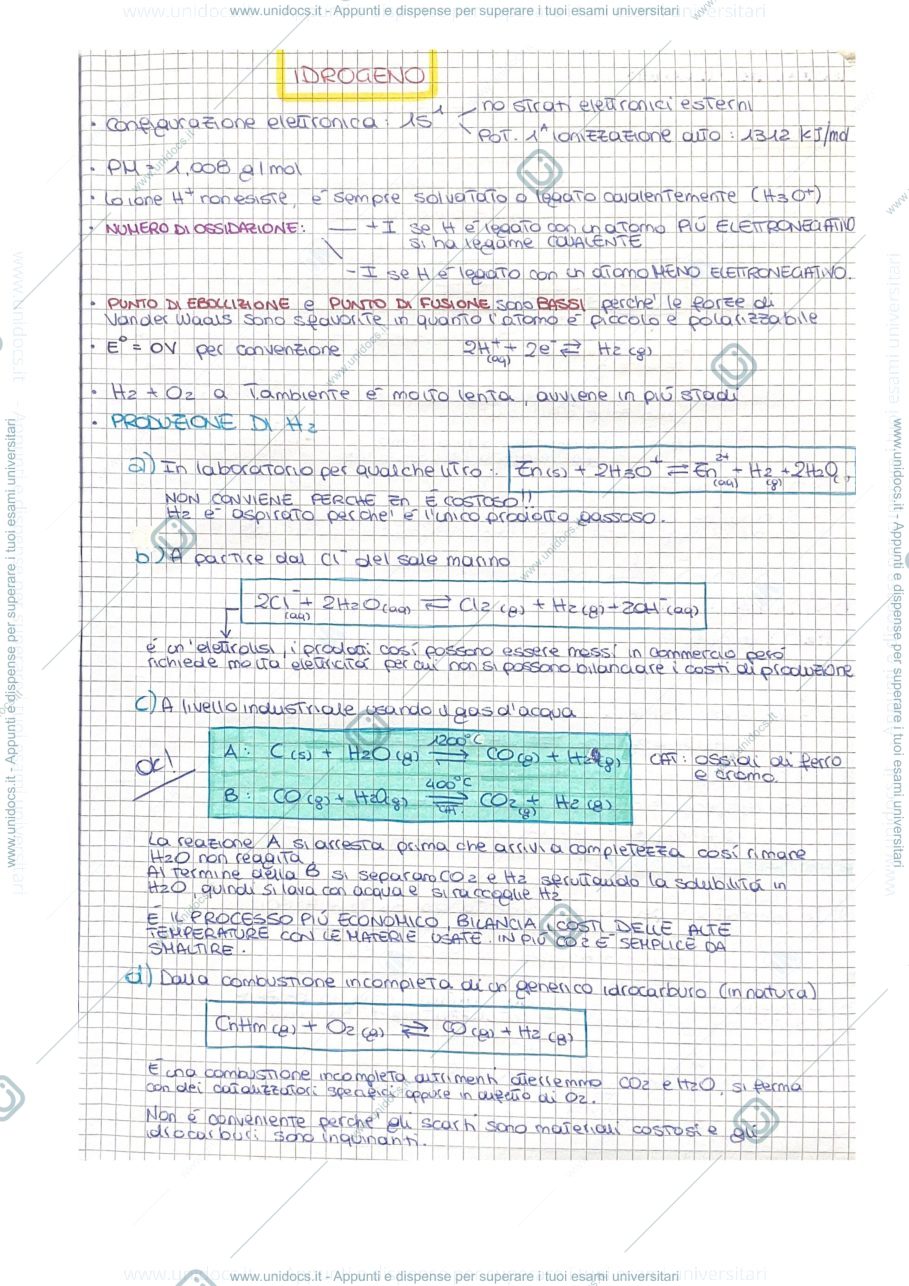 www.unidocs.it - Appunti e dispense per superare i tuoi esami universitari
IDROGENO
• configurazione elettronica: 1S¹
no strati elettronici esterni
POT. 1ᴬ ionizzazione alto: 1312 KJ/mol
• PM = 1,008 g/mol
• Lo ione H⁺ non esiste, e' sempre solvatato o legato covalentemente (H3O⁺)
• NUMERO DI OSSIDAZIONE: — +I se H é legato con un atomo PIÚ ELETTRONEGATIVO
si ha legame COVALENTE
-I se H é legato con un atomo MENO ELETTRONEGATIVO.
• PUNTO DI EBOLLIZIONE e PUNTO DI FUSIONE sono BASSI perche' le forze di
Van der Waals sono sfavorite in quanto l'atomo é piccolo e polarizzabile
• E° = 0V per convenzione 2H⁺(aq) + 2e⁻ ⇄ H2 (g)
• H2 + O2 a Tambiente é molto lenta, avviene in piú stadi
• PRODUZIONE DI H2
a) In laboratorio per qualche litro: Zn(s) + 2H3O⁺ ⇌ Zn²⁺(aq) + H2(g) + 2H2O
NON CONVIENE PERCHE Zn É COSTOSO!!
H2 é aspirato perche' é l'unico prodotto gassoso.
b) A partire dal Cl⁻ del sale marino
2Cl⁻(aq) + 2H2O(aq) ⇄ Cl2 (g) + H2(g) + 2OH⁻(aq)
é un'elettrolisi, i prodotti cosí possono essere messi in commercio peró
richiede molta elettricitá per cui non si possono bilanciare i costi di produzione
c) A livello industriale usando il gas d'acqua
OK!
A: C(s) + H2O(g) 1200°C ⇄ CO(g) + H2(g)
B: CO(g) + H2O(g) 400°C ⇄ CAT. CO2(g) + H2 (g)
CAT: ossidi di ferro
e cromo.
La reazione A si arresta prima che arrivi a completezza cosí rimane
H2O non reagita.
Al termine della B si separano CO2 e H2 sfruttando la solubilitá in
H2O, quindi si lava con acqua e si raccoglie H2
É IL PROCESSO PIÚ ECONOMICO, BILANCIA I COSTI DELLE ALTE
TEMPERATURE CON LE MATERIE USATE. IN PIÚ CO2 É SEMPLICE DA
SMALTIRE.
d) Dalla combustione incompleta di un generico idrocarburo (in natura)
CnHm(g) + O2(g) ⇄ CO(g) + H2 (g)
É una combustione incompleta altrimenti otterremmo CO2 e H2O, si ferma
con dei catalizzatori specifici oppure in difetto di O2.
Non é conveniente perche' gli scarti sono materiali costosi e gli
idrocarburi sono inquinanti.
www.unidocs.it - Appunti e dispense per superare i tuoi esami universitari